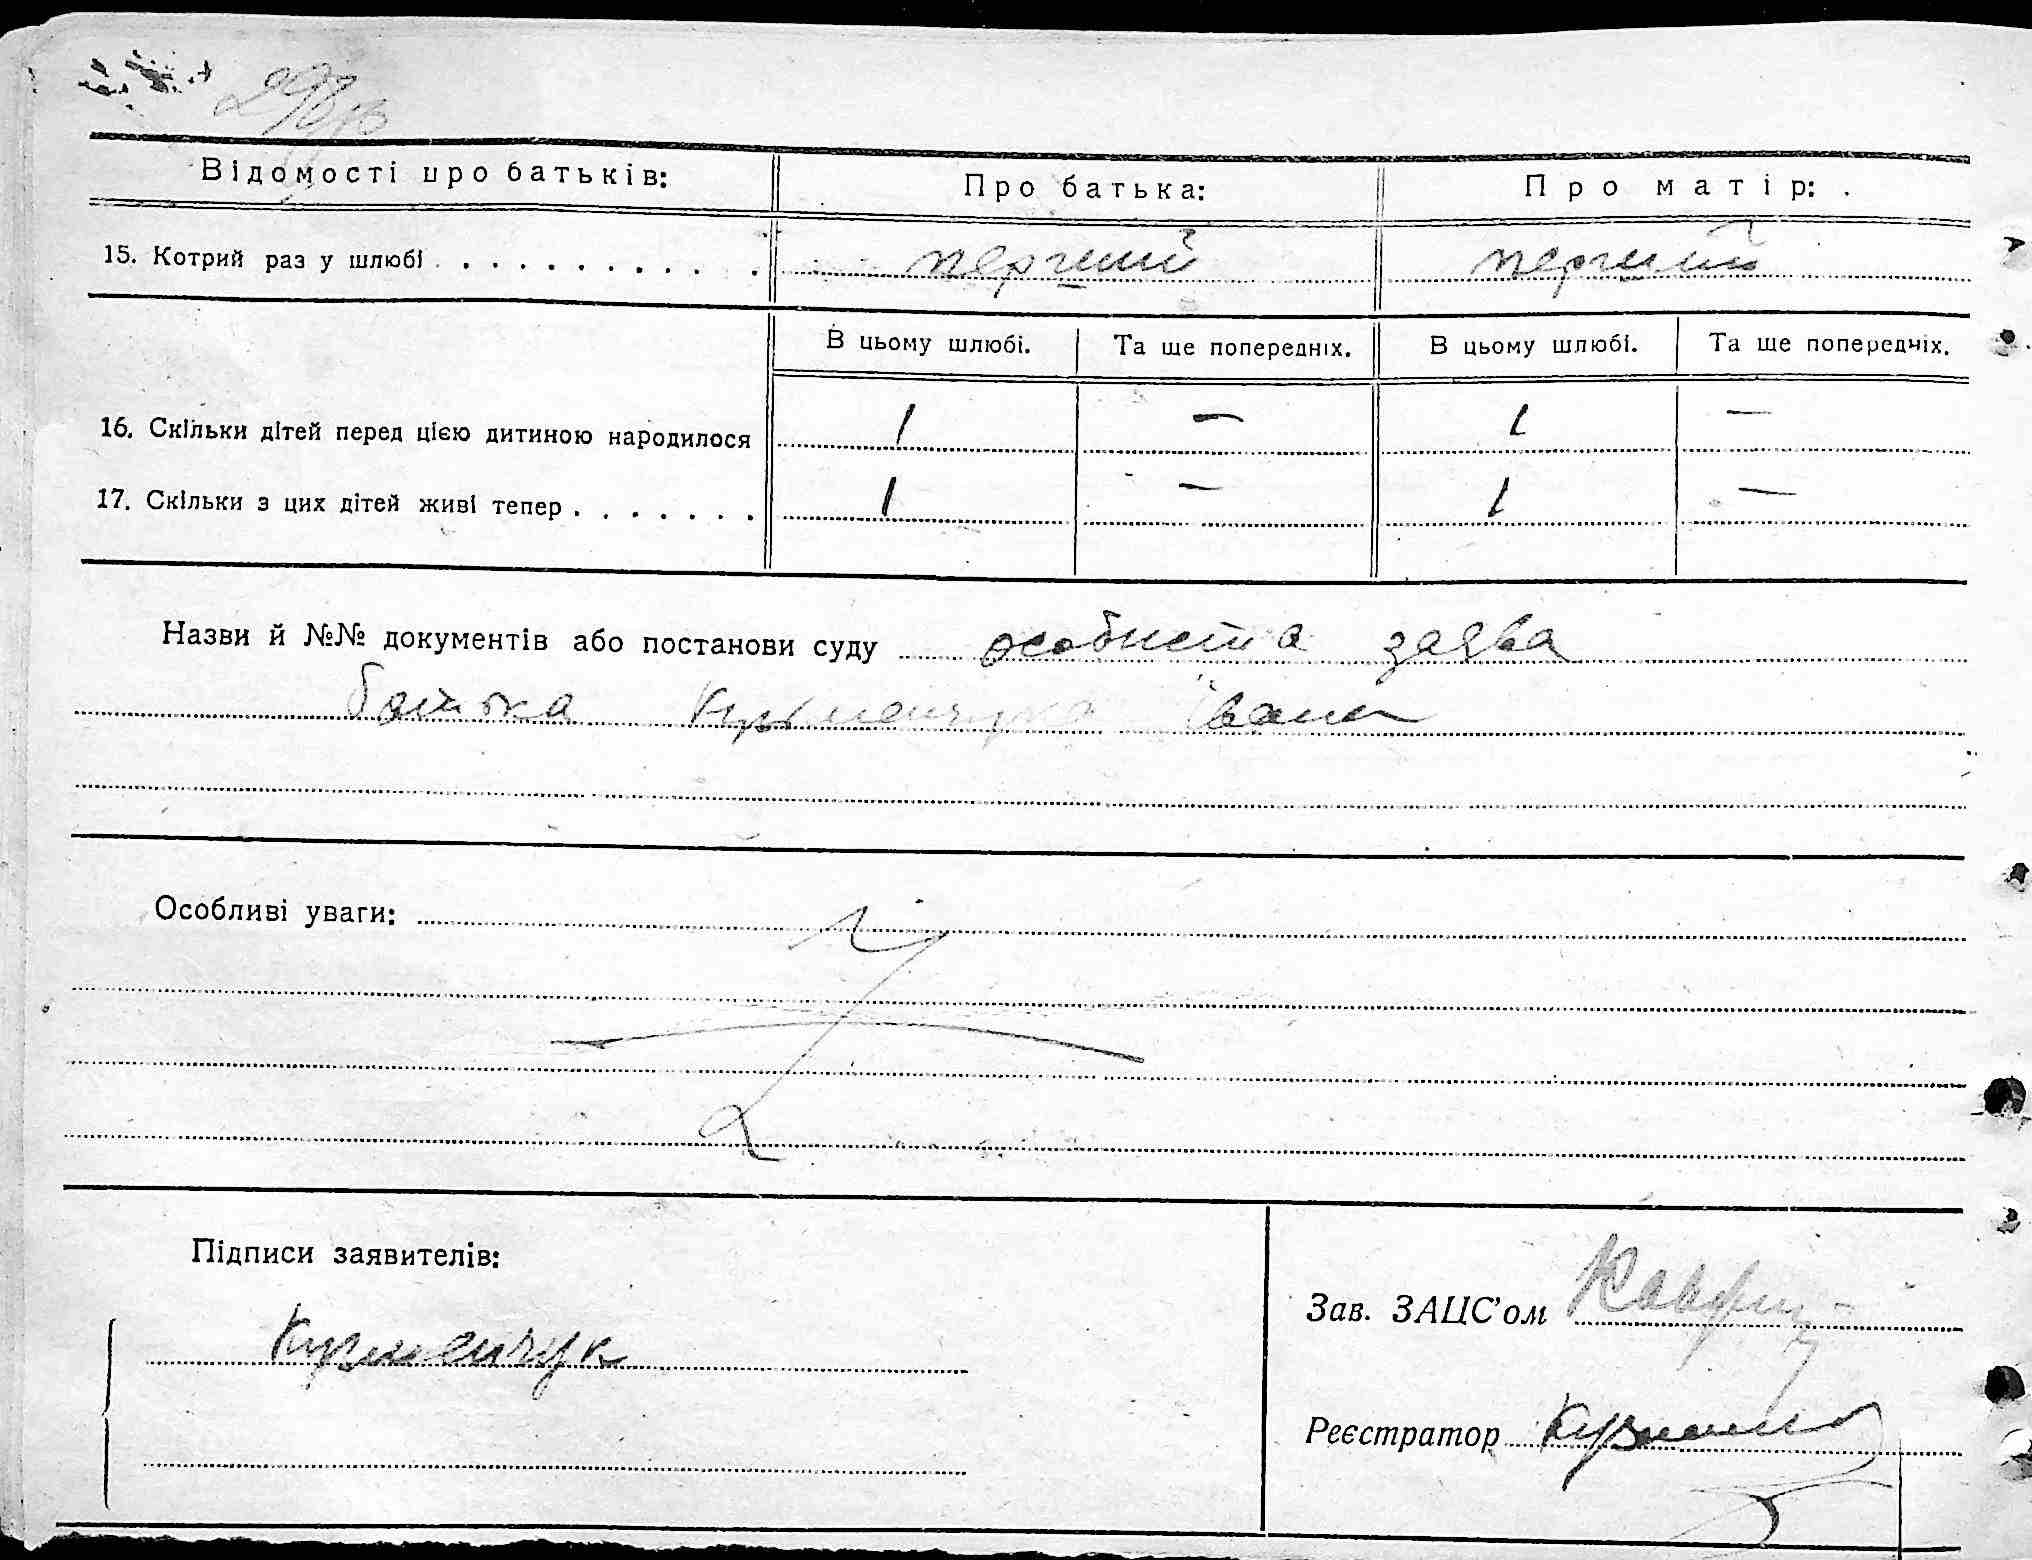 Відомості про батьків:
Про батька:
Про матір:
15. Котрий раз у шлюбі . . . . . . . . . . .
перший
перший
В цьому шлюбі.
Та ще попередніх.
В цьому шлюбі.
Та ще попередніх.
16. Скільки дітей перед цією дитиною народилося
1 — 1 —
17. Скільки з цих дітей живі тепер . . . . . . .
1 — 1 —
Назви й №№ документів або постанови суду особиста заява
батька Кузьменчука Івана
Особливі уваги:
Підписи заявителів:
Кузменчук
Зав. ЗАЦС'ом
Реєстратор